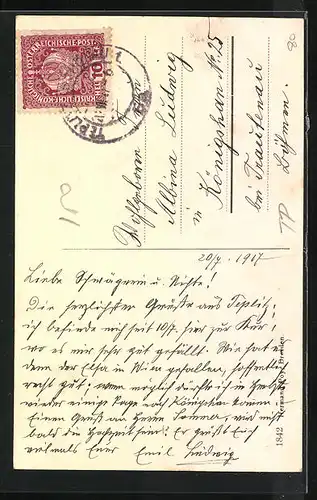 KAISERLICHE KÖNIGLICHE ÖSTERREICHISCHE POST
10
Wohlgeboren
Albina Ludwig
in Königshan Nr. 25
bei Trautenau
Böhmen.
20/7. 1917
Liebe Schwägerin u. Nichte!
Die herzlichsten Grüße aus Teplitz,
ich befinde mich seit 10/7. hier zur Kur,
wo es mir sehr gut gefällt. Wie hat es
denn der Elsa in Wien gefallen, hoffentlich
recht gut; wenn möglich dürfte ich im Herbst
wieder einige Tage nach Königshan kommen
Einen Gruß an Herrn Sommer, wird nicht
bald die Hochzeit sein? Es grüßt Euch
vielmals Euer Emil Ludwig
1842 Hermann Poy, Dresden
80